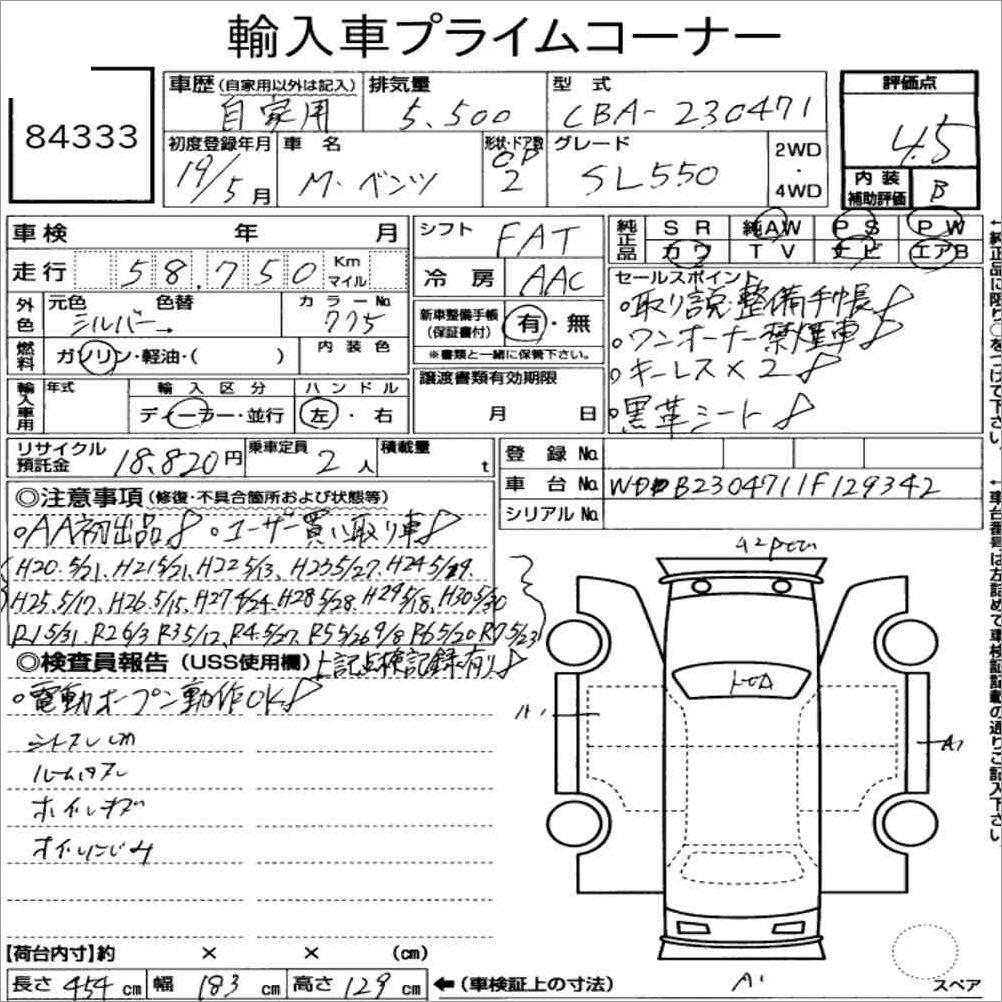 輸入車プライムコーナー
84333
車歴(自家用以外は記入) 排気量 型式 評価点
自家用 5.500 CBA-230471 4.5
初度登録年月 車名 形状・ドア数 グレード 2WD・4WD
19/5月 M・ベンツ OP 2 SL550
内装補助評価 B
車検 年 月
走行 58.750 Km マイル
外色 元色 色替 カラーNo.
シルバー→ 775
燃料 ガソリン・軽油・( ) 内装色
輸入車用 年式 輸入区分 ハンドル
ディーラー・並行 左・右
リサイクル預託金 18.820円 乗車定員 2人 積載量 t
シフト FAT
冷房 AAC
新車整備手帳(保証書付) 有・無
※書類と一緒に保管下さい。
譲渡書類有効期限
月 日
純正品 SR 純AW PS PW
カワ TV ナビ エアB
セールスポイント
○取り説・整備手帳
○ワンオーナー禁煙車
○キーレス×2
○黒革シート
登録No.
車台No. WDBB2304711F129342
シリアルNo.
←純正品に限り○をつけて下さい。
←車台番号は左詰めで車検証記載の通りご記入下さい。
◎注意事項(修復・不具合箇所および状態等)
○AA初出品 ○ユーザー買い取り車
H20.5/21. H21 5/21. H22 5/13. H23 5/27. H24 5/29.
H25.5/17. H26.5/15. H27 4/24 H28 5/28. H29 5/18. H30 5/30
R1 5/31. R2 6/3 R3 5/12. R4.5/27. R5 5/26 9/8 R6 5/20 R7 5/23
◎検査員報告(USS使用欄) 上記点検記録有り
○電動オープン動作OK
ホイルキズ
オイルにじみ
A1
A1
【荷台内寸】約 × × (cm)
長さ 454 cm 幅 183 cm 高さ 129 cm ←(車検証上の寸法)
スペア